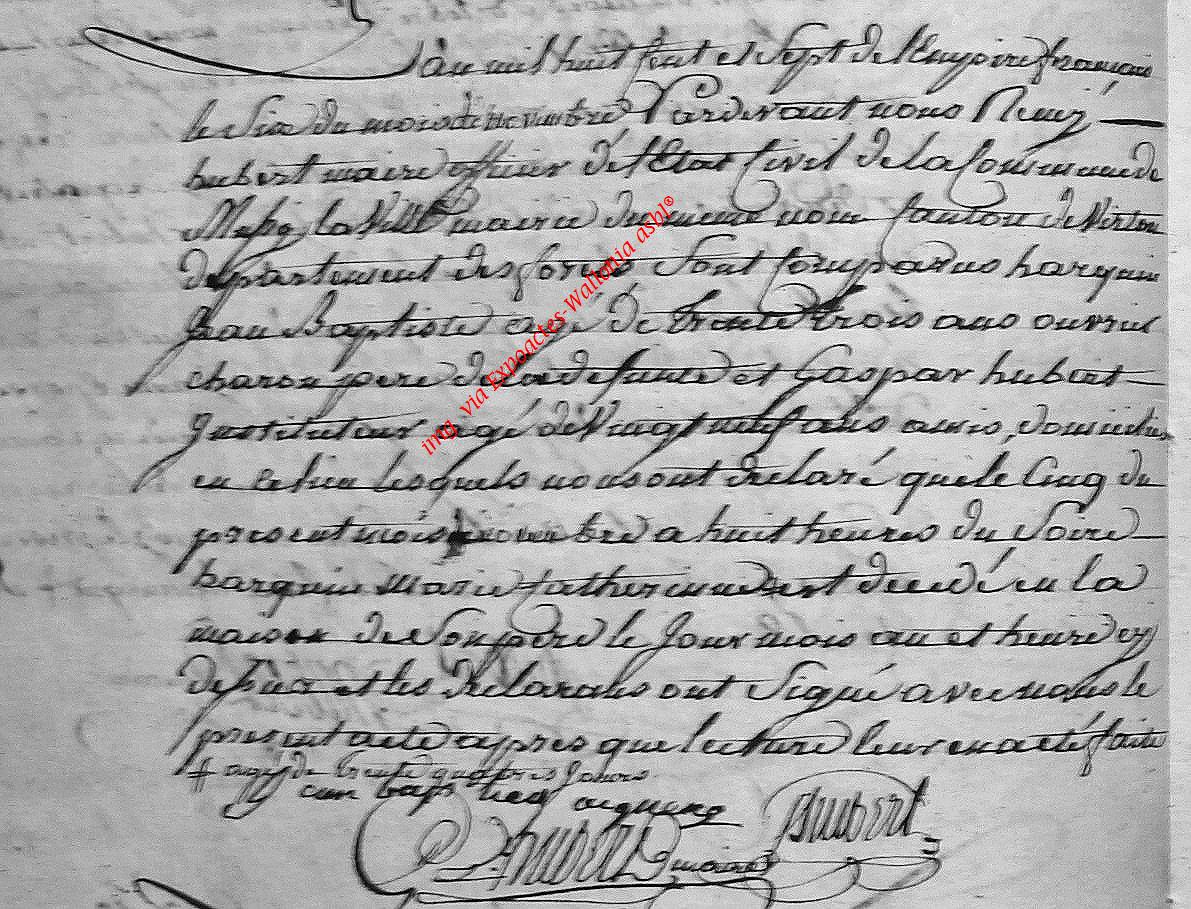 L'an mil huit Cent et Sept de l'Empire francais
le Six du mois de novembre Pardevant nous Remy
hubert maire officier de l'Etat Civil de la Commune de
la Ville mairie du meme nom Canton de Virton
departement des forets Sont Comparus harquin
Jean Baptiste agé de trente trois ans ouvrier
charon pere de la defunte et Gaspar hubert
Instituteur agé de Vingt neuf ans amis, domicilies
en ce lieu lesquels nous ont declaré que le Cinq du
present mois novembre a huit heures du Soire
harquin Marie Catherinne est decedé en la
maison de Son pere le Jour mois an et heure cy
dessus et les declarans ont Signé avec nous le
present acte apres que lecture leur en a eté faite
# agé de trente quatres Jours
hubert
hubert maire
img. via Expoactes-Wallonia asbl®